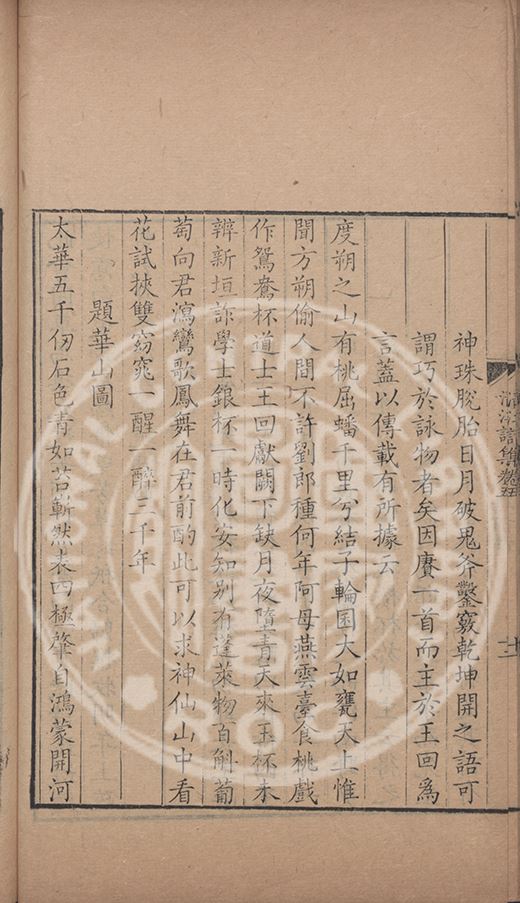 神珠脫胎日月破鬼斧鑿竅乾坤開之語可
謂巧於詠物者矣因賡一首而主於王回爲
言蓋以傳載有所據云
度朔之山有桃屈蟠千里兮結子輪囷大如甕天上惟
聞方朔偷人間不許劉郎種何年阿母燕雲臺食桃戲
作鴛鴦杯道士王回獻闕下缺月夜墮青天來玉杯未
辨新垣詐學士銀杯一時化安知別有蓬萊物百斛葡
萄向君瀉鸞歌鳳舞在君前酌此可以求神仙山中看
花試挾雙窈窕一醒一醉三千年
題華山圖
太華五千仞石色青如苔嶄然表四極肇自鴻蒙開河
詩集卷五
十一